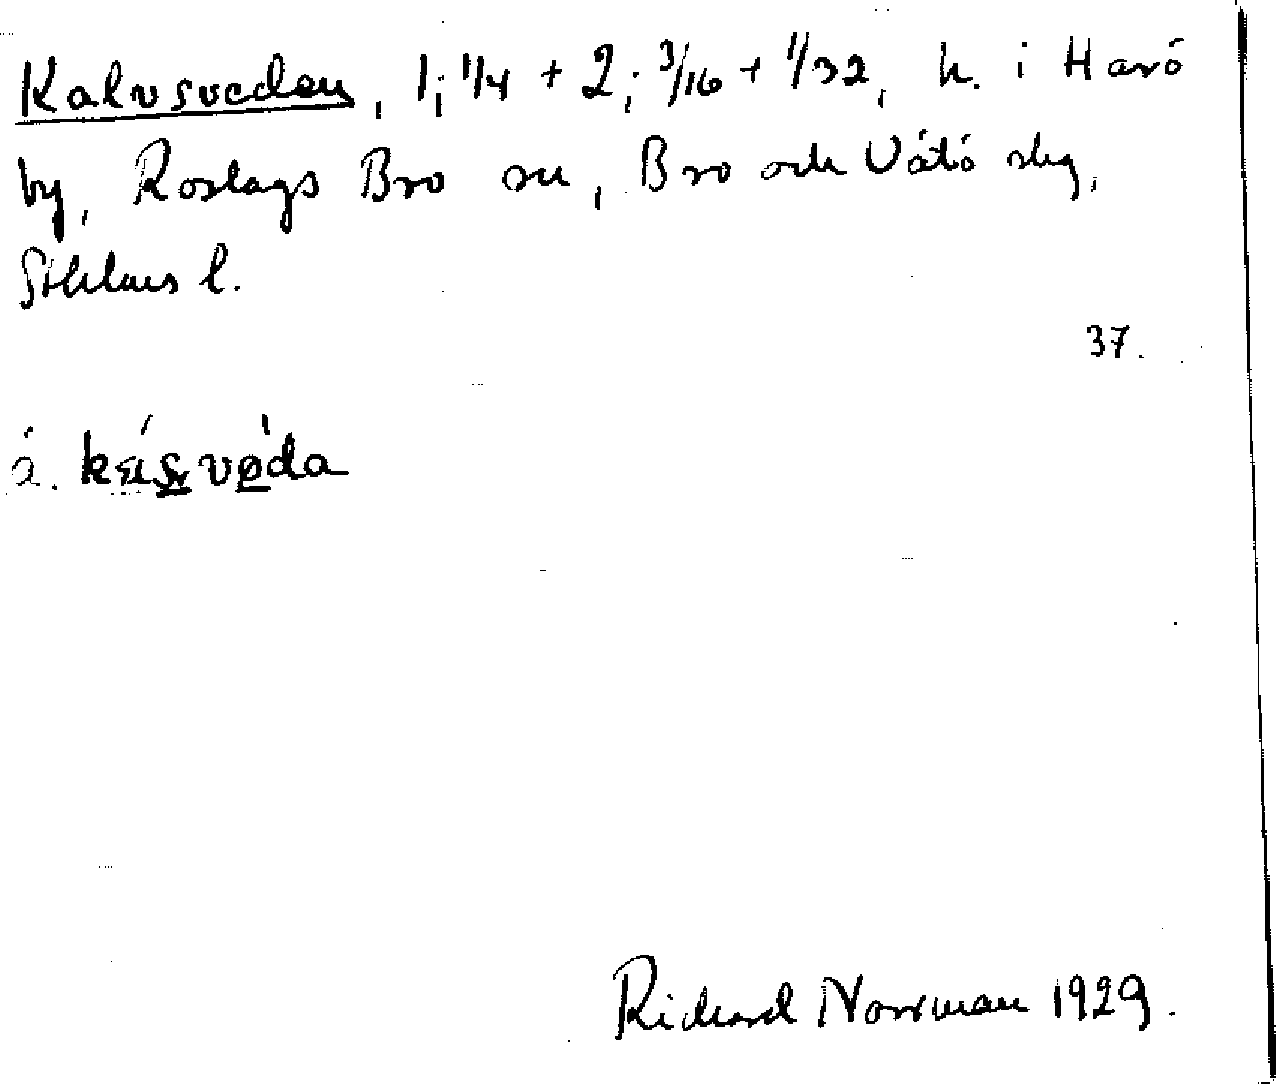 Kalvsveden, 1; 1/4 + 2; 3/16 + 1/32, h. i Havö
by, Roslags Bro sn, Bro och Vätö skg,
Sthlms l.
37.
å.
Richard Norrman 1929.